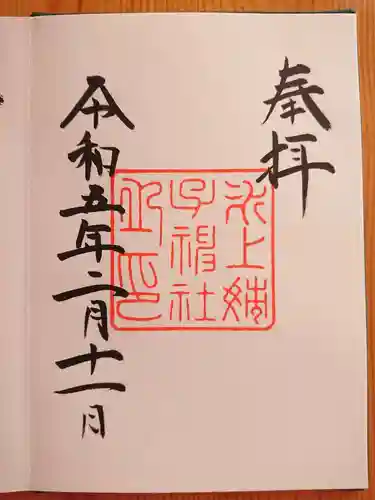 奉拝
氷上姉
子神社
之印
令和五年二月十一日